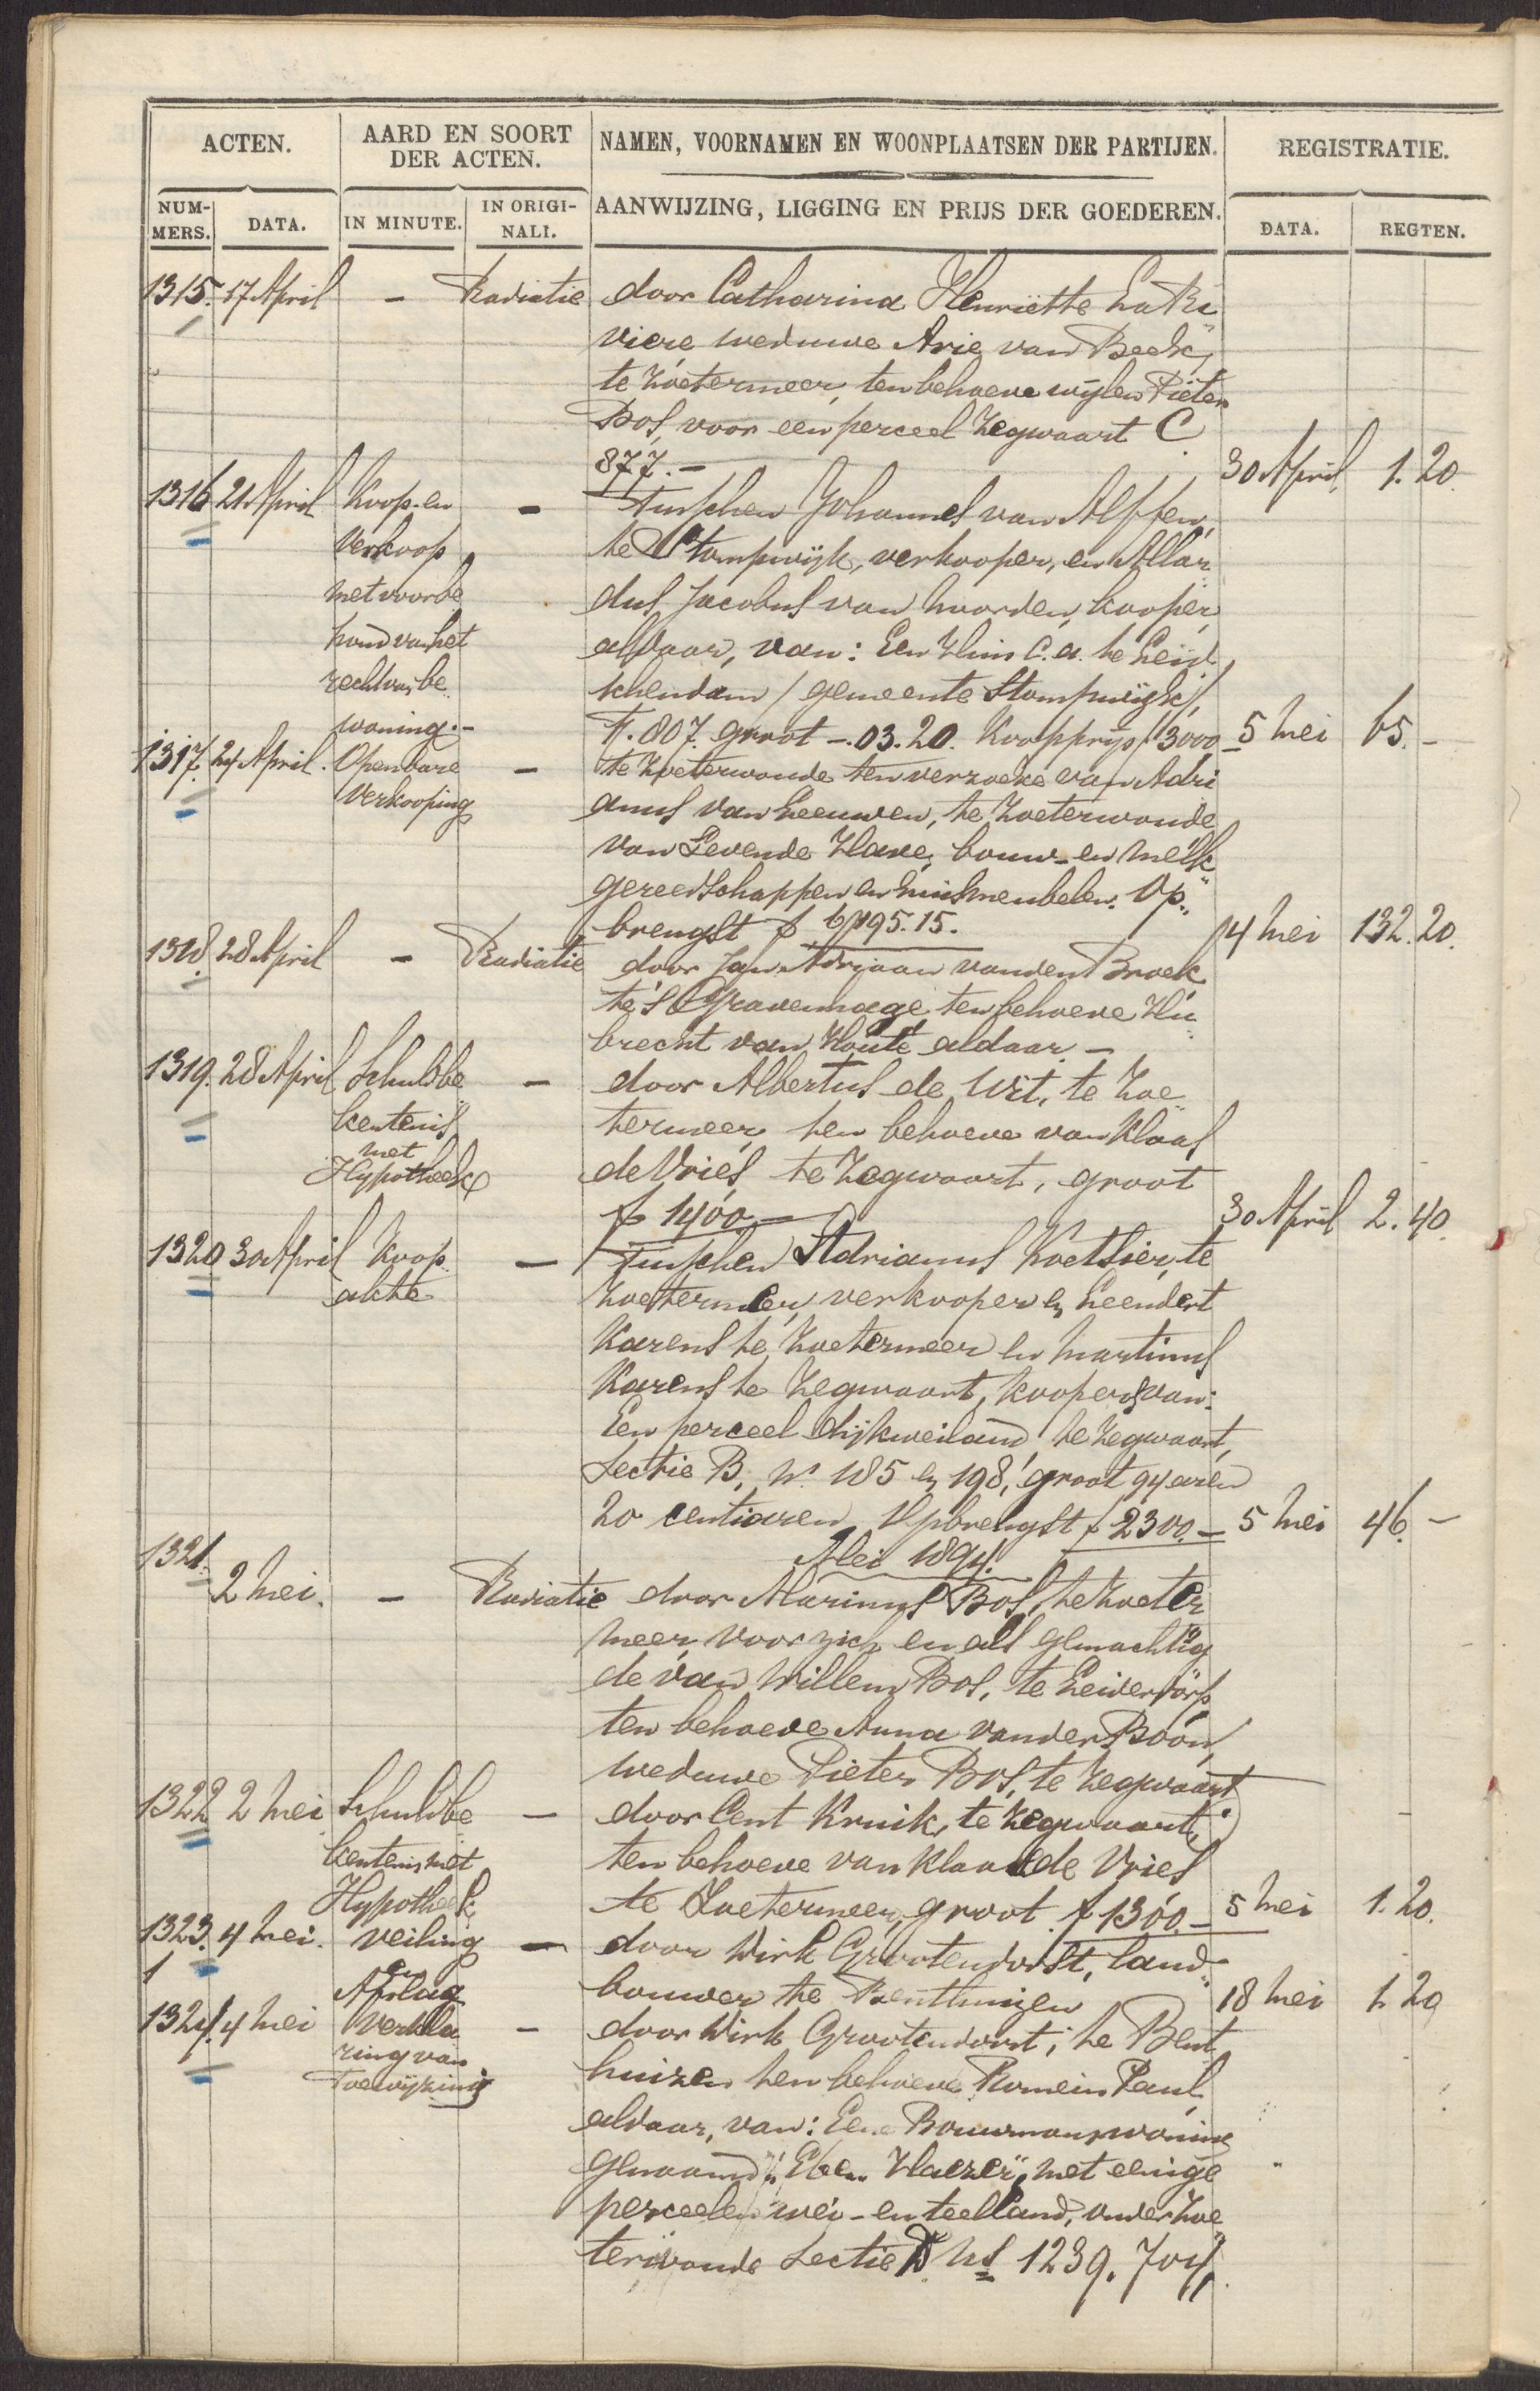 ACTEN.
AARD EN SOORT
DER ACTEN.
NAMEN, VOORNAMEN EN WOONPLAATSEN DER PARTIJEN.
REGISTRATIE.
NUM-
MERS.
DATA.
IN MINUTE.
IN ORIGI-
NALI.
AANWIJZING, LIGGING EN PRIJS DER GOEDEREN.
DATA.
REGTEN.
1315. 17 April – Radiatie door Catharina Henriëtte La Ri
viere, weduwe Arie van Beek,
te Zoetermeer, ten behoeve wijlen Pieter
Bos, voor een perceel Zegwaart C
877.– 30 April 1.20.
1316 21 April Koop- en – Tusschen Johannes van Alffen,
Verkoop te Stompwijk, verkooper, en Allar
met voorbe dus Jacobus van Noorden, kooper,
houd van het aldaar, van: Een Huis c.a. te Leid
recht van be schendam / gemeente Stompwijk /,
woning.– F. 807. groot –.03.20. Koopprijs f 3000– 5 Mei 65.–
1317. 24 April. Openbare – te Zoeterwoude ten verzoeke van Adri
Verkooping anus van Leeuwen, te Zoeterwoude
van Levende Have, bouw- en melk
gereedschappen en huismeubelen. Op
brengst f 6195.15. 4 Mei 132.20.
1318. 28 April – Radiatie door Jan Adrjaan van den Broek
te 's Gravenhage ten behoeve Hu
brecht van Houte aldaar.–
1319. 28 April Schuldbe – door Albertus de Wit, te Zoe
kentenis termeer, ten behoeve van Klaas
met
Hypotheek de Vries te Zegwaart, groot
f 1400.– 30 April 2.40.
1320 30 April Koop. – Tusschen Adrianus Koetsier, te
akte Zoetermeer, verkooper en Leendert
Karens te Zoetermeer en Martinus
Karens te Zegwaart, koopers van:
Een perceel dijkweiland te Zegwaart,
Sectie B, Ns 185 en 198, groot 94 aren
20 centiaren, Opbrengst f 2300.– 5 Mei 46.–
Mei 1894.
1321. 2 Mei. – Radiatie door Marinus Bos, te Zoeter
meer, voor zich en als gemachtig
de van Willem Bos, te Leiderdorp
ten behoeve Anna van der Boon,
weduwe Pieter Bos, te Zegwaart
1322 2 Mei Schuldbe – door Cent Kruik, te Zegwaart,
kentenis met ten behoeve van Klaas de Vries
Hypotheek te Zoetermeer, groot f 1300.– 5 Mei 1.20.
1323. 4 Mei. Veiling – door Dirk Grootendorst, land
en
Afslag bouwer te Benthuizen 18 Mei 1.20
1324. 4 Mei Verkla – door Dirk Grootendorst, te Bent
ring van
Toewijzing huizen ten behoeve Romein Paul,
aldaar, van: Eene Bouwmanswoning
genaamd "Eben Haezer", met eenige
perceelen wei- en teelland, onder Zoe
terwoude Sectie D. Ns 1239. 704,